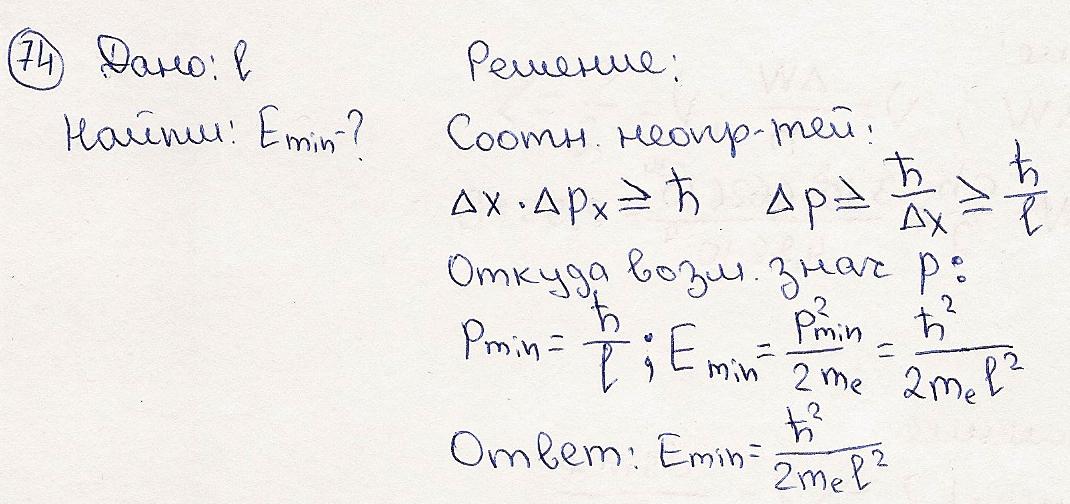 74 Дано: l
Найти: Emin-?
Решение:
Соотн. неопр-тей:
Δx·Δpx ≥ ħ Δp ≥ ħ/Δx ≥ ħ/l
Откуда возм. знач p:
Pmin = ħ/l ; Emin = p²min/2me = ħ²/2mel²
Ответ: Emin = ħ²/2mel²